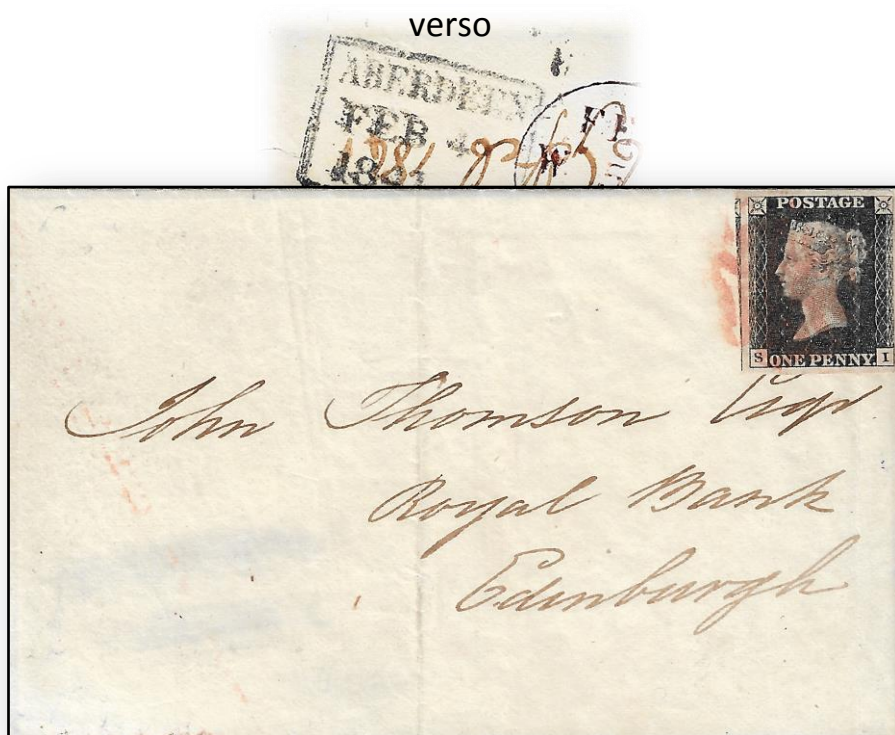 verso
ABERDEEN
FEB 4
POSTAGE
S ONE PENNY. I
John Thomson Esqr
Royal Bank
Edinburgh